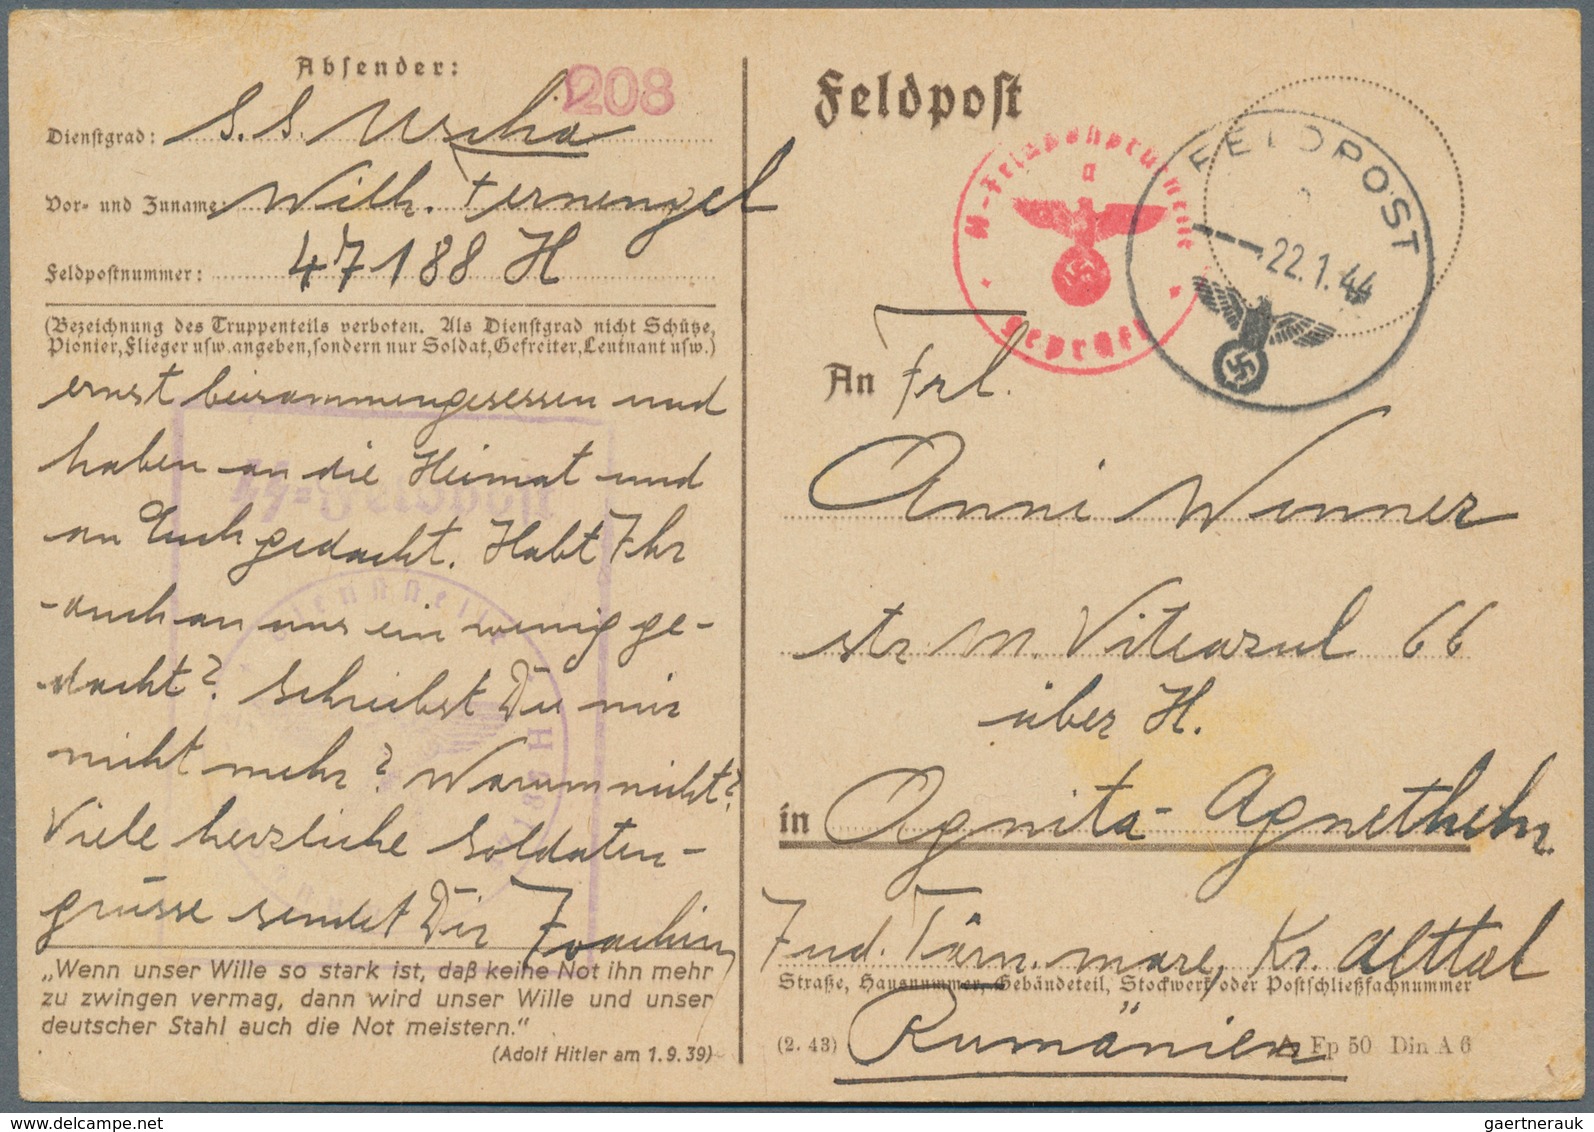 Absender:
208
Dienstgrad: S.S. Uscha
Vor- und Zuname: Wilh. Fernengel
Feldpostnummer: 47188 H
(Bezeichnung des Truppenteils verboten. Als Dienstgrad nicht Schütze,
Pionier, Flieger usw. angeben, sondern nur Soldat, Gefreiter, Leutnant usw.)
ernst beisammengesessen und
haben an die Heimat und
an Euch gedacht. Habt Ihr
auch an uns ein wenig ge-
dacht? Schreibst Du mir
nicht mehr? Warum nicht?
Viele herzliche Soldaten-
grüsse sendet Dir Joachim
„Wenn unser Wille so stark ist, daß keine Not ihn mehr
zu zwingen vermag, dann wird unser Wille und unser
deutscher Stahl auch die Not meistern.“
(Adolf Hitler am 1.9.39)
SS-Feldpost
Feldpost
a
Geprüft
FELDPOST
22.1.44
An Frl.
Anni Wenner
str M. Viteazul 66
über H.
in Agnita- Agnetheln
Jud. Târn. mare, Kr. Alttal
Straße, Hausnummer, Gebäudeteil, Stockwerk oder Postschließfachnummer
Rumänien
(2. 43)
Fp 50 Din A 6
gaertnerauk